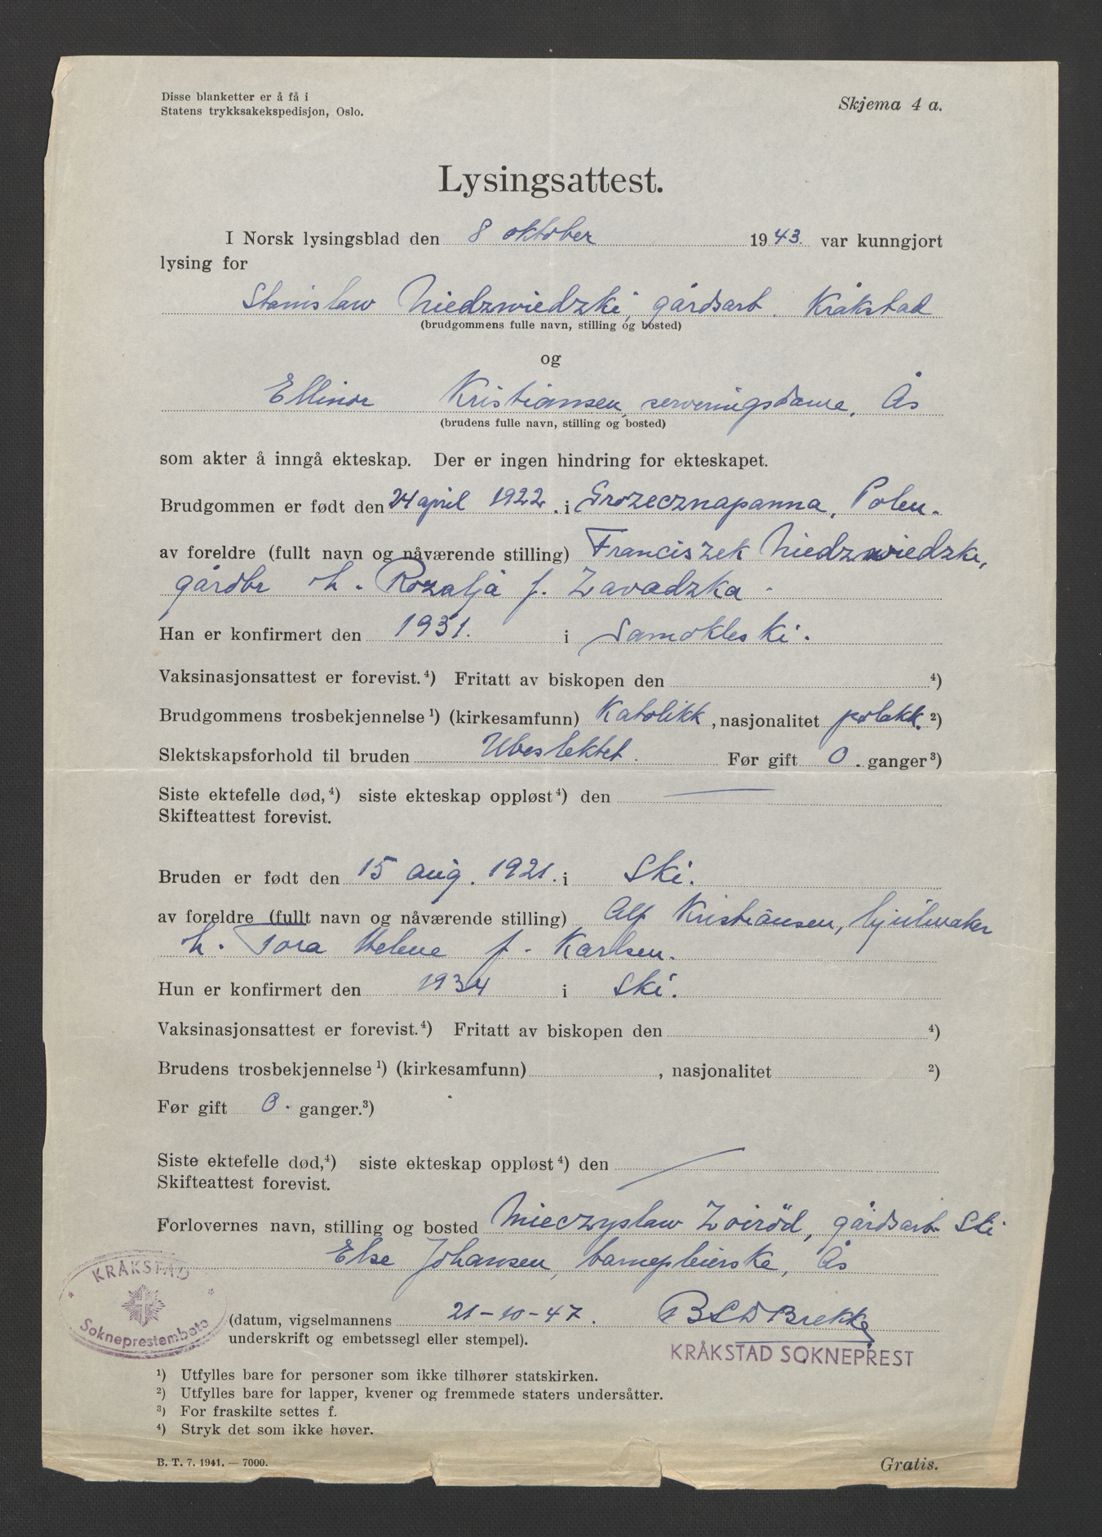 Disse blanketter er å få i
Statens trykksakekspedisjon, Oslo.
Skjema 4 a.
Lysingsattest.
I Norsk lysingsblad den 8 oktober 1943. var kunngjort
lysing for
Stanislaw Niedzwiedzki, gårdsarb. Kråkstad
(brudgommens fulle navn, stilling og bosted)
og
Ellinor Kristiansen, serveringsdame, Ås
(brudens fulle navn, stilling og bosted)
som akter å inngå ekteskap. Der er ingen hindring for ekteskapet.
Brudgommen er født den 24 april 1922. i Grozecznapanna, Polen.
av foreldre (fullt navn og nåværende stilling) Franciszek Niedzwiedzki,
gårdbr h. Rozalja f. Zavadzka.
Han er konfirmert den 1931. i Samokleski.
Vaksinasjonsattest er forevist.⁴) Fritatt av biskopen den ⁴)
Brudgommens trosbekjennelse¹) (kirkesamfunn) Katolikk, nasjonalitet polakk.²)
Slektskapsforhold til bruden Ubeslektet. Før gift 0. ganger³)
Siste ektefelle død,⁴) siste ekteskap oppløst⁴) den
Skifteattest forevist.
Bruden er født den 15 aug. 1921. i Ski.
av foreldre (fullt navn og nåværende stilling) Alf Kristiansen, hjulmaker
h. Tora Helene f. Karlsen.
Hun er konfirmert den 1934 i Ski.
Vaksinasjonsattest er forevist.⁴) Fritatt av biskopen den ⁴)
Brudens trosbekjennelse¹) (kirkesamfunn) , nasjonalitet ²)
Før gift 0. ganger.³)
Siste ektefelle død,⁴) siste ekteskap oppløst⁴) den
Skifteattest forevist.
Forlovernes navn, stilling og bosted Mieczyslaw Zvirød, gårdsarb. Ski
Else Johansen, barnepleierske, Ås
KRÅKSTAD
Sokneprestembete
(datum, vigselmannens 21-10-47. Brekke
underskrift og embetssegl eller stempel).
KRÅKSTAD SOKNEPREST
¹) Utfylles bare for personer som ikke tilhører statskirken.
²) Utfylles bare for lapper, kvener og fremmede staters undersåtter.
³) For fraskilte settes f.
⁴) Stryk det som ikke høver.
B. T. 7. 1941. — 7000.
Gratis.